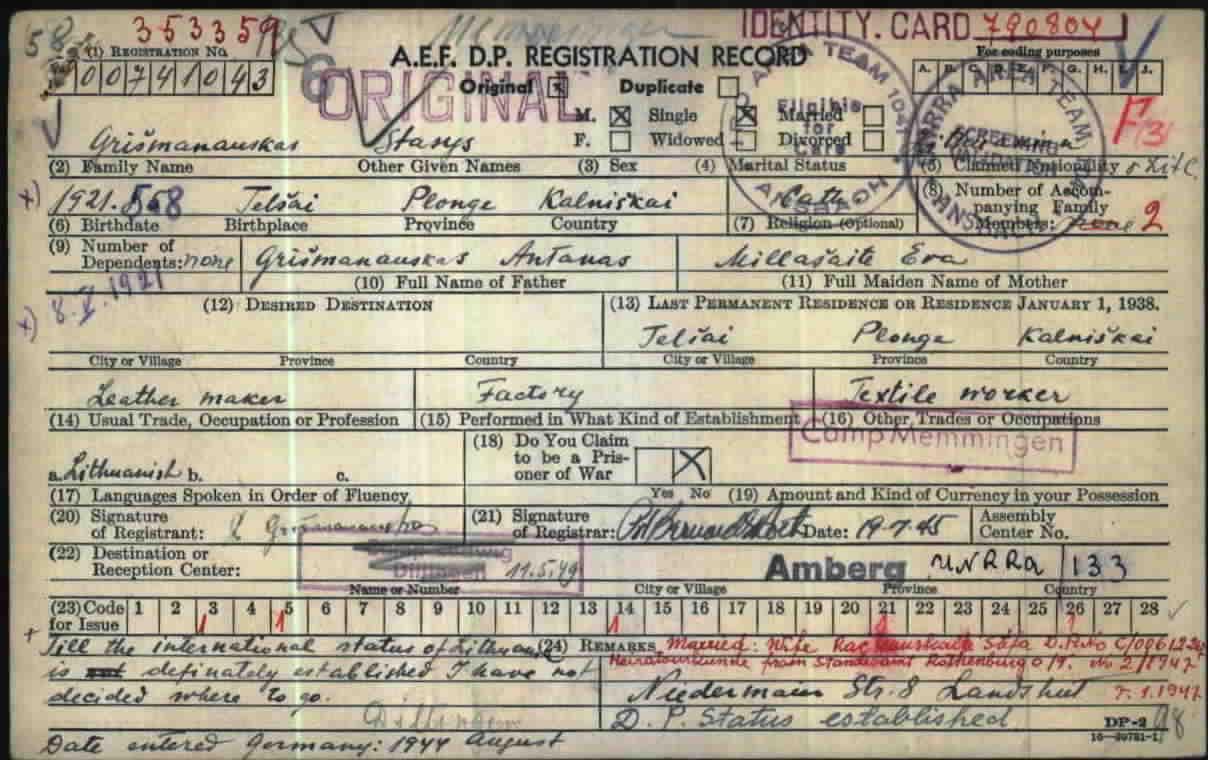 353359 IDENTITY. CARD 790804
(1) REGISTRATION NO. A.E.F. D.P. REGISTRATION RECORD For coding purposes
00741043 Original ☒ Duplicate ☐ A. B. C. D. E. F. G. H. I. J.
ORIGINAL
M. ☒ Single ☒ Married ☐
F. ☐ Widowed ☐ Divorced ☐
Grišmanauskas Stasys
(2) Family Name Other Given Names (3) Sex (4) Marital Status (5) Claimed Nationality
1921. Telšai Plonge Kalniškai Cath. (8) Number of Accompanying Family Members: none 2
(6) Birthdate Birthplace Province Country (7) Religion (Optional)
(9) Number of Dependents: none Grišmanauskas Antanas Millašaite Eva
(10) Full Name of Father (11) Full Maiden Name of Mother
8. X. 1921
(12) DESIRED DESTINATION (13) LAST PERMANENT RESIDENCE OR RESIDENCE JANUARY 1, 1938.
Telšai Plonge Kalniškai
City or Village Province Country City or Village Province Country
Leather maker Factory Textile worker
(14) Usual Trade, Occupation or Profession (15) Performed in What Kind of Establishment (16) Other Trades or Occupations
Camp Memmingen
a. Lithuanish b. c. (18) Do You Claim to be a Prisoner of War ☐ ☒
(17) Languages Spoken in Order of Fluency Yes No (19) Amount and Kind of Currency in your Possession
(20) Signature of Registrant: Grišmanauskas (21) Signature of Registrar: Date: 19-7-45 Assembly Center No.
(22) Destination or Reception Center: Dillingen 11.5.49 Amberg UNRRA 133
Name or Number City or Village Province Country
(23) Code for Issue 1 2 3 4 5 6 7 8 9 10 11 12 13 14 15 16 17 18 19 20 21 22 23 24 25 26 27 28
Till the international status of (24) REMARKS Married: Wife
is not definately established I have not Heiratsurkunde from Standesamt Rothenburg
decided where to go. Niedermaier Str. 8 Landshut 7.1.1947
Dillingen D. P. Status established DP-2
Date entered Germany: 1944 August